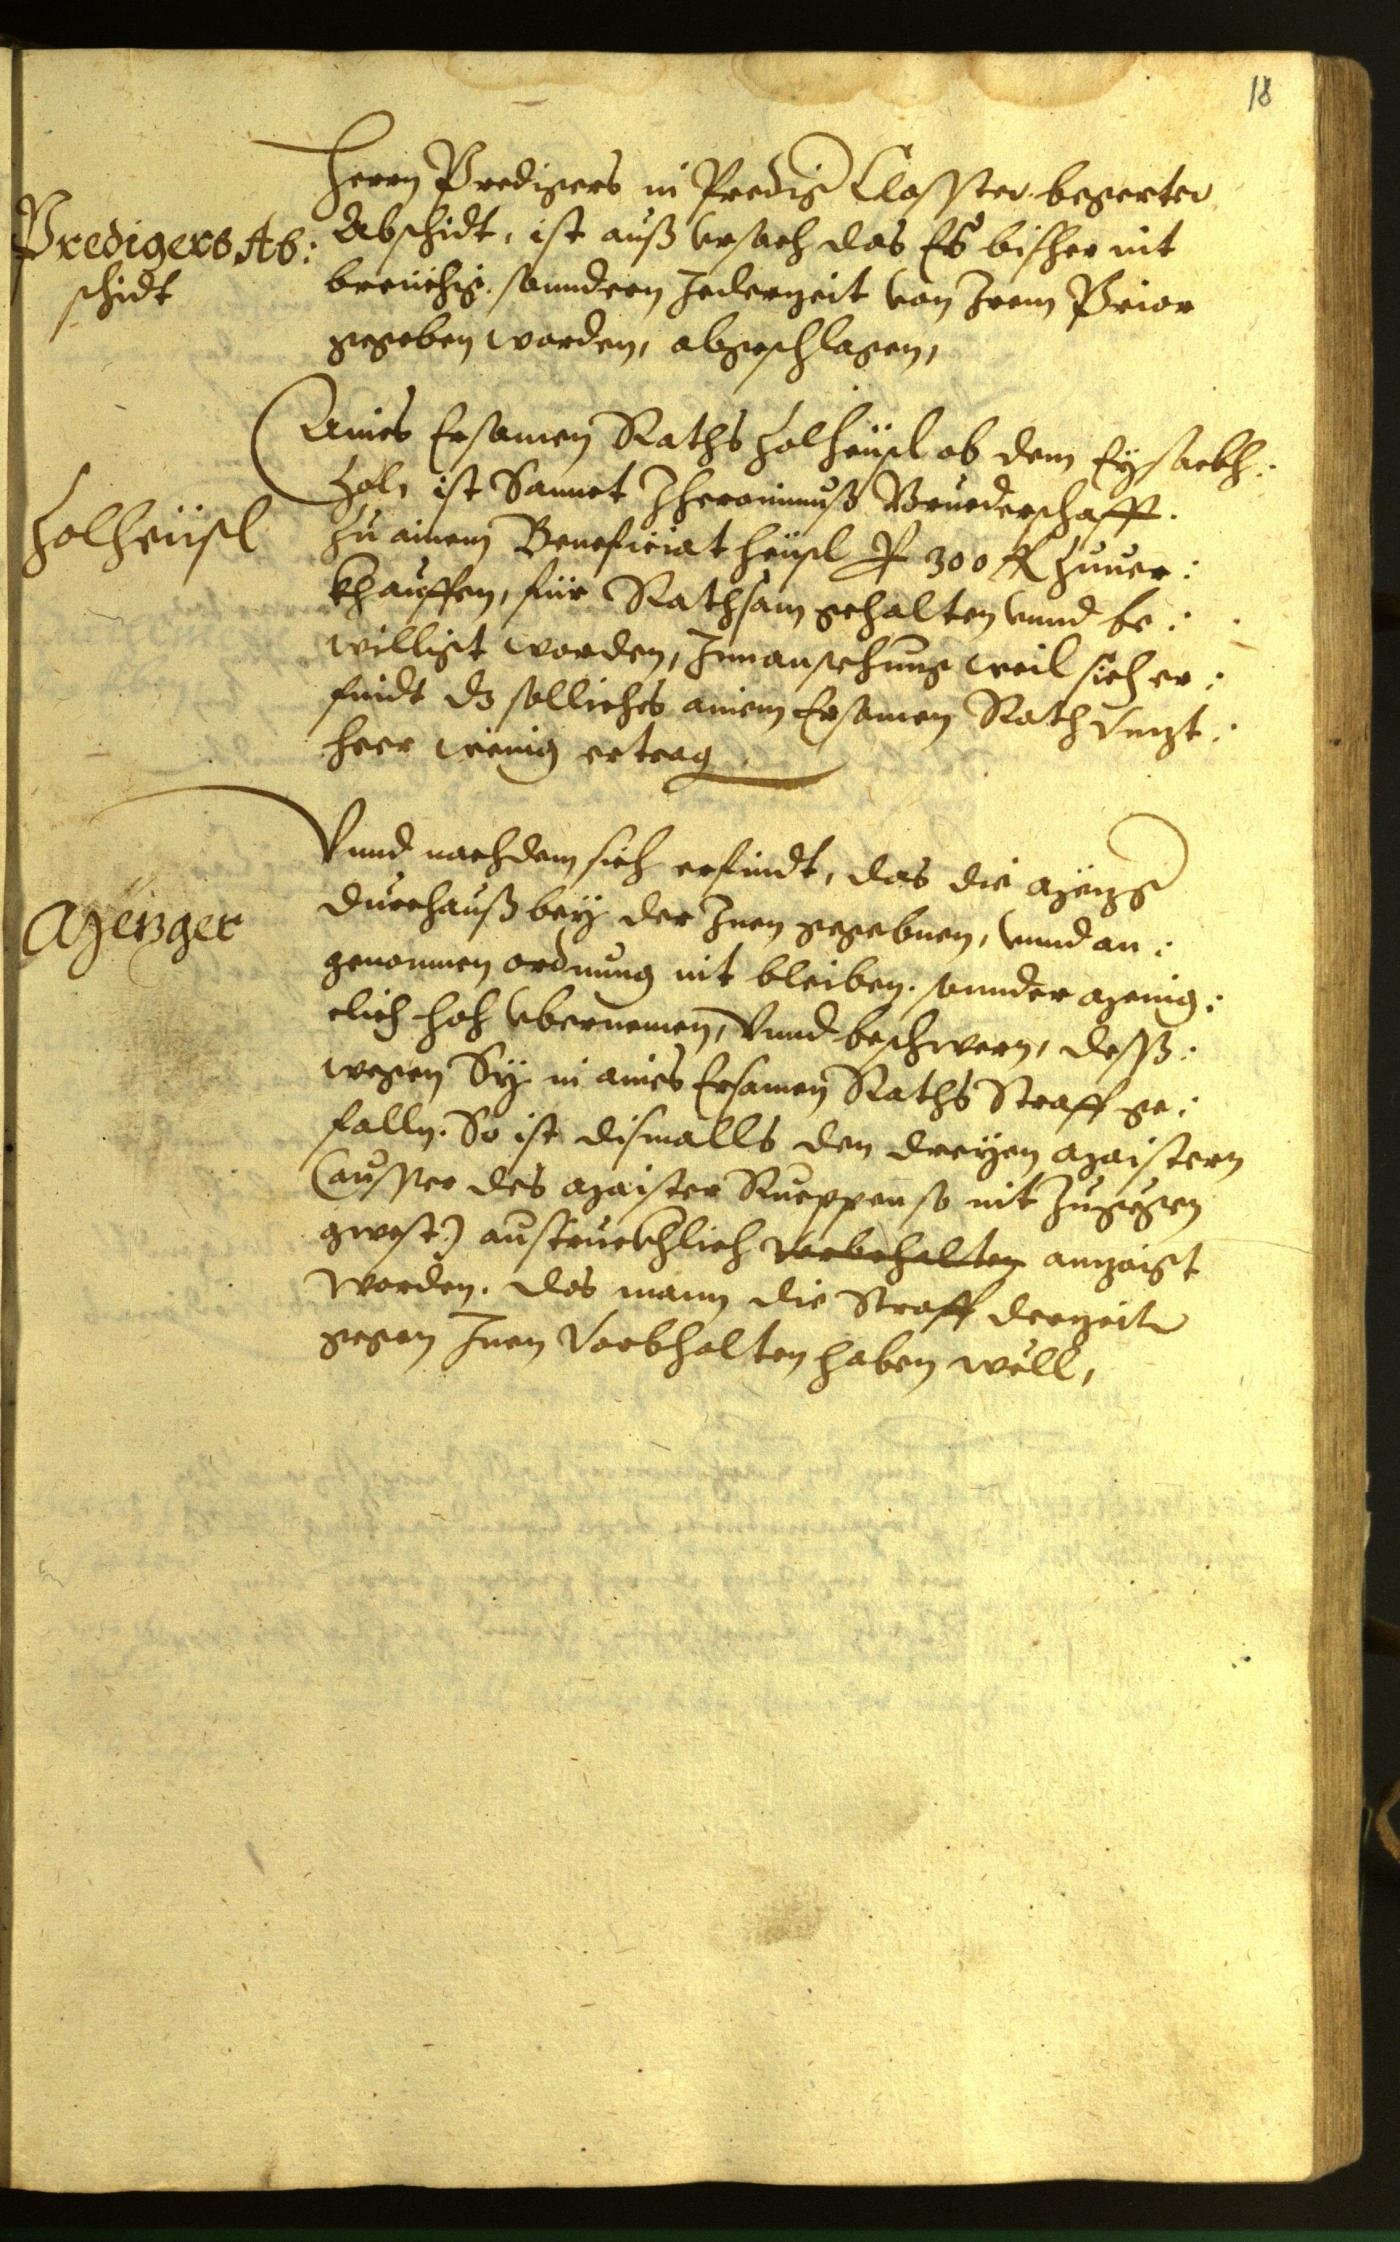 18
Predigers Ab:
schidt
Herrn Predigers in Predig Closster begerter
Abschidt, ist auß Vrsach das Es bisher nit
breuchig, sonndern Jederzeit von Jrem Prior
gegeben worden, abgeschlagen,
Zolheüsl
Aines Ersamen Raths Zolheüsl ob dem Eysackh:
Zoln ist Sannct Jheronimuß Bruederschafft.
Zu ainem Beneficiat heüsl P 300 fl Zuuer:
khauffen, für Rathsam gehalten vnnd be:
willigt worden, Jnnansehung weil sich er:
findt dz solliches ainem Ersamen Rath Vnzt:
heer wenig ertrag
Mezger
Vnnd nachdem sich erfindt, das die Mezg
durchauß bey der Jnen gegebnen, vnnd an:
genomnen ordnung nit bleiben. sonnder menig:
clich hoch vbernemen, Vnnd beschwern, desß:
wegen Sy in aines Ersamen Raths Straff ge:
falln. So ist dismalls den dreyen maistern
(ausser des maister Rueppen so nit Zugegen
gwest) austruckhlich vorbehalten anzaigt
worden. das mann die Straff derzeit
gegen Jnen Vorbhalten haben wöll,